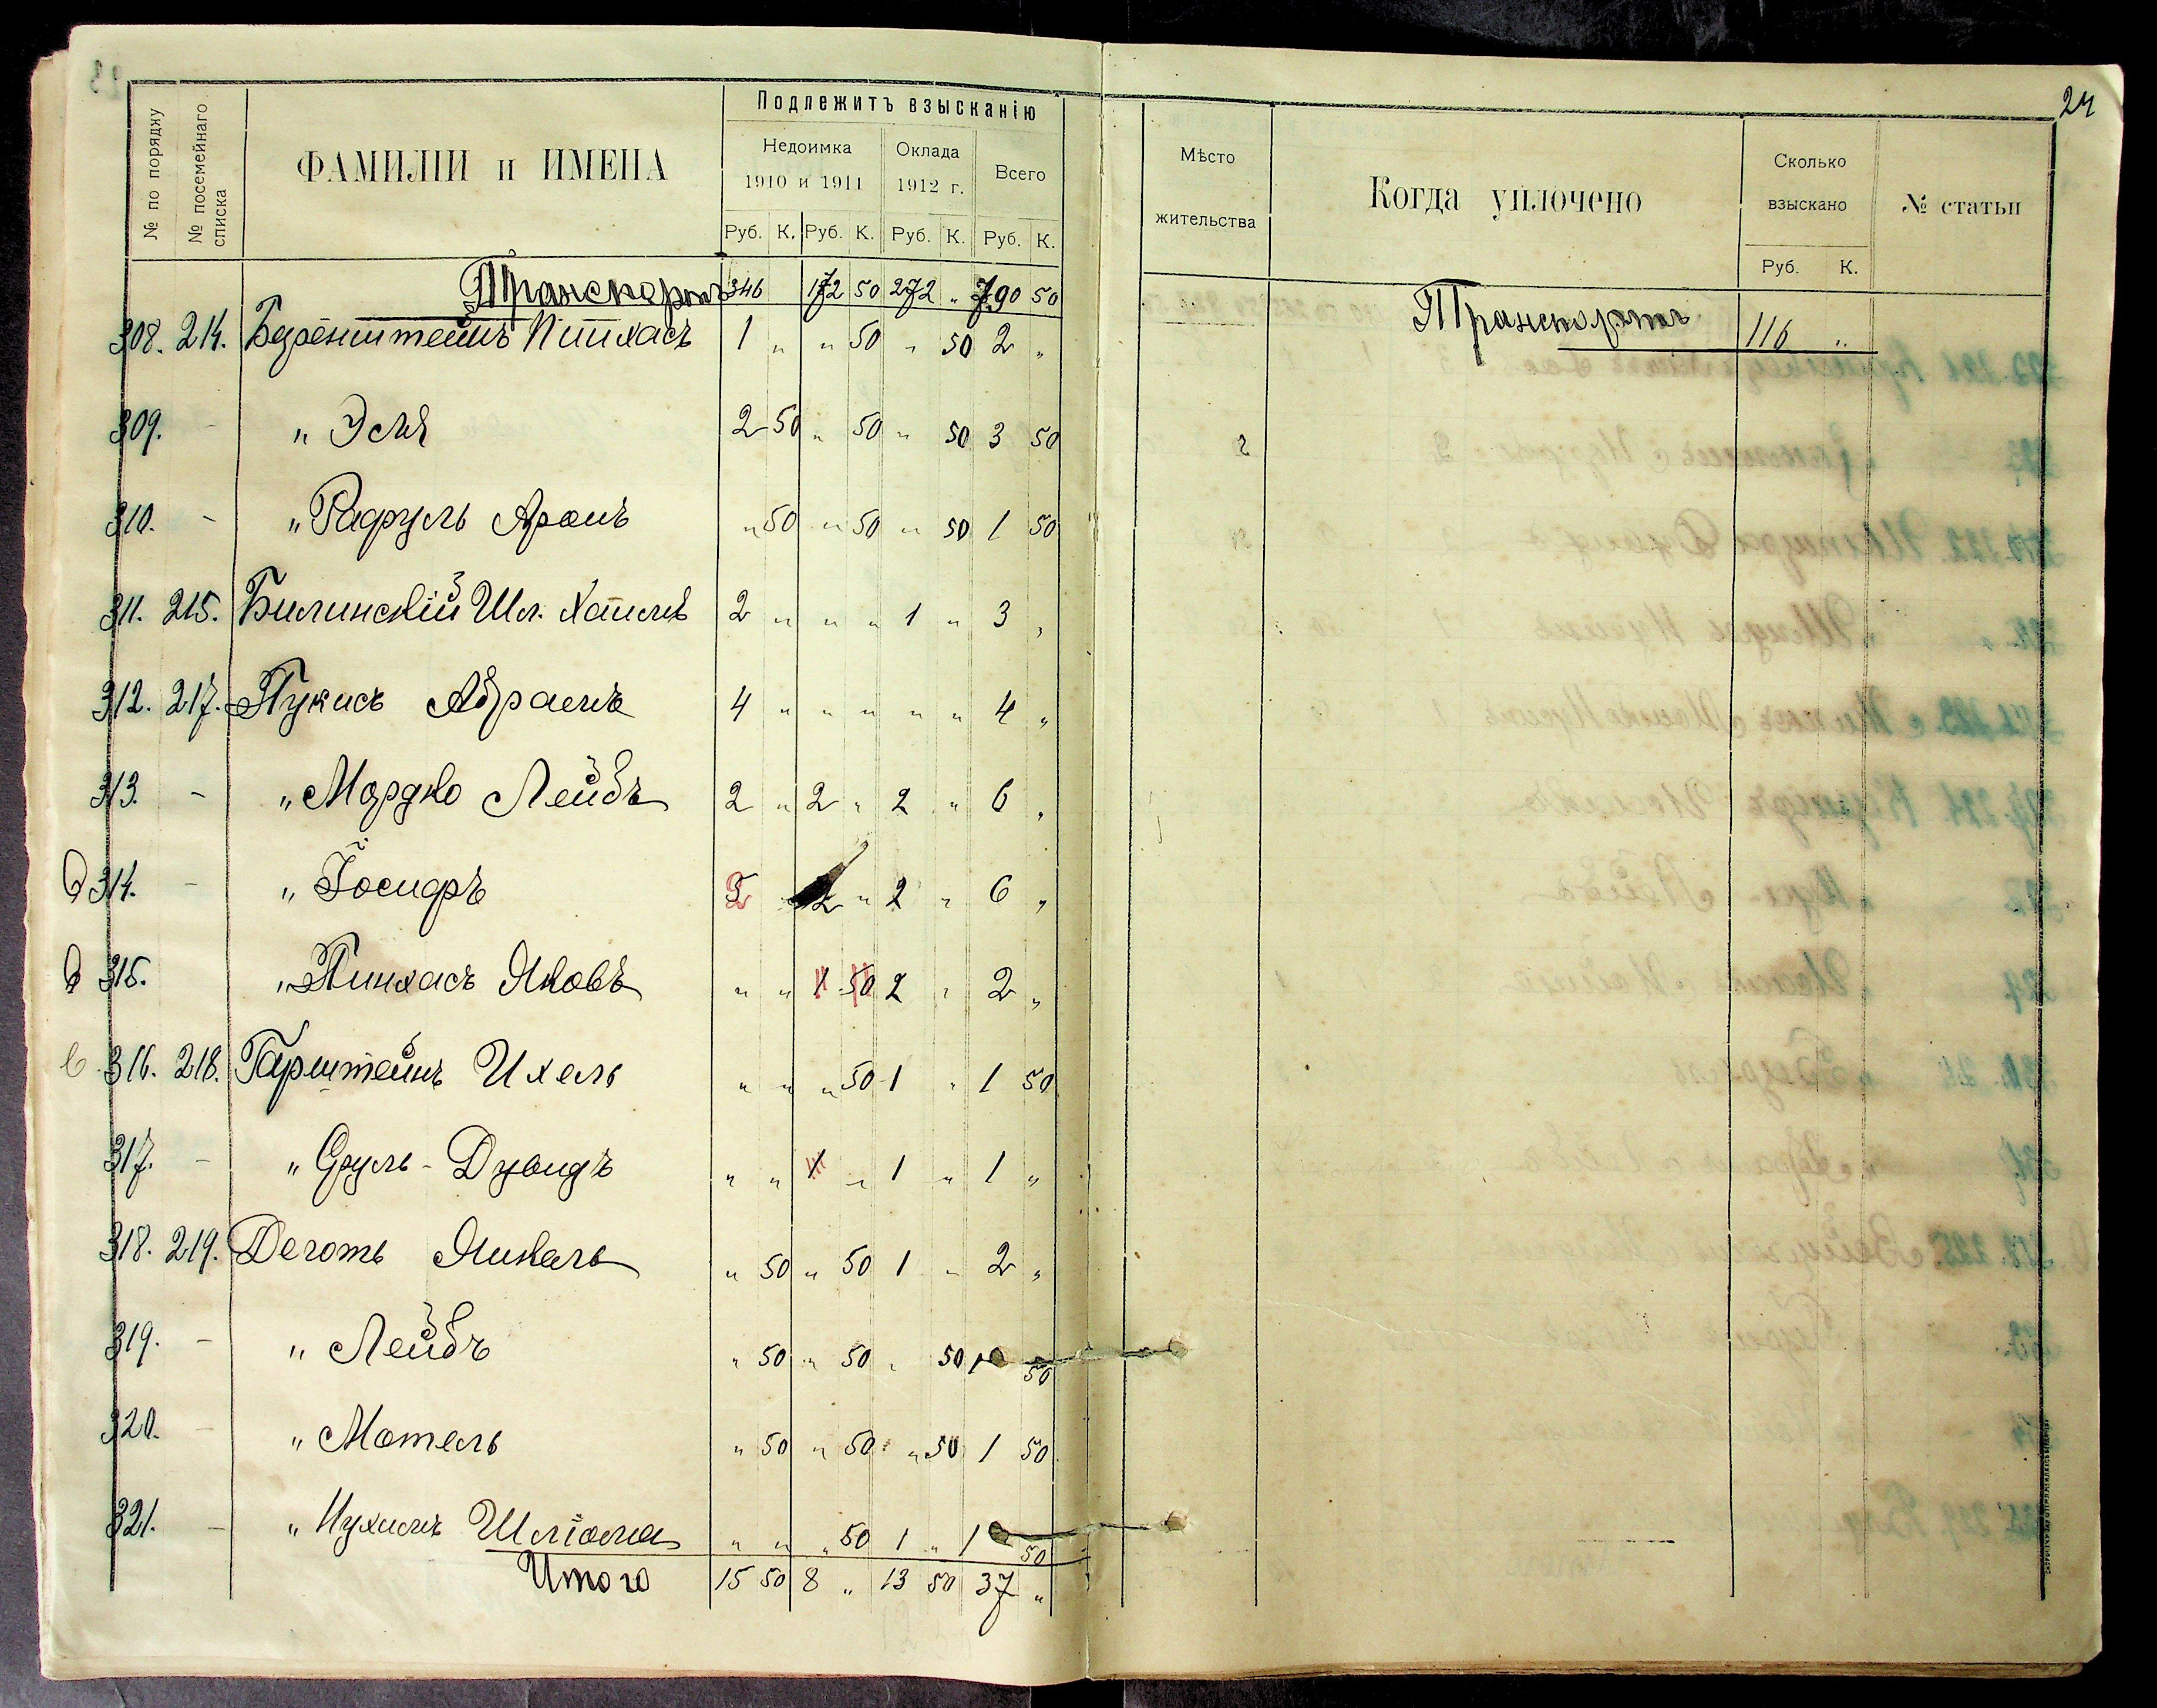 24
№ по порядку
№ посемейнаго списка
ФАМИЛІИ и ИМЕНА
Подлежитъ взысканію
Недоимка Оклада Всего
1910 и 1911 1912 г.
Руб. К. Руб. К. Руб. К. Руб. К.
Мѣсто жительства
Когда уплочено
Сколько взыскано
Руб. К.
№ статьи
Транспортъ 346 172 50 272 „ 790 50
Транспортъ 116 „
308. 214. Беренштейнъ Пинхасъ 1 „ „ 50 „ 50 2 „
309. - „ Эля 2 50 „ 50 „ 50 3 50
310. - „ Рафуль Аронъ „ 50 „ 50 „ 50 1 50
311. 215. Билинскій Шл. Хаимъ 2 „ „ „ 1 „ 3 „
312. 217. Пукисъ Абрамъ 4 „ „ „ „ „ 4 „
313. - „ Мордко Лейбъ 2 „ 2 „ 2 „ 6 „
314. - „ Іосифъ 2 „ 2 „ 2 „ 6 „
315. „ Пинхасъ Яковъ „ „ 1 50 2 „ 2 „
316. 218. Гарштейнъ Ихель „ „ „ 50 1 „ 1 50
317. - „ Сруль-Дувидъ „ „ 1 „ 1 „ 1 „
318. 219. Деготь Янкель „ 50 „ 50 1 „ 2 „
319. - „ Лейбъ „ 50 „ 50 „ 50 1 50
320. - „ Мотель „ 50 „ 50 „ 50 1 50
321. - „ Нухимъ Шліома „ „ „ 50 1 „ 1 50
Итого 15 50 8 „ 13 50 37 „